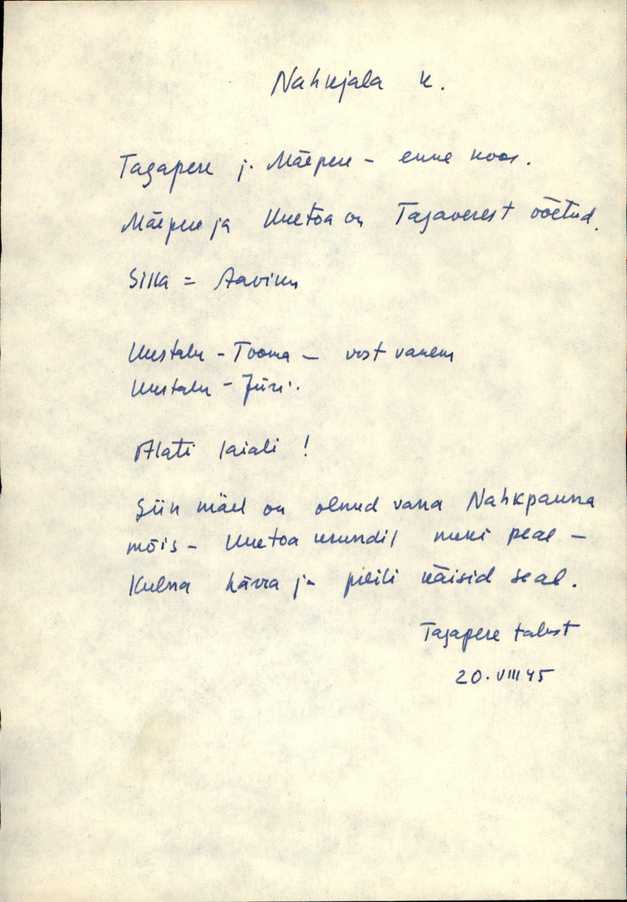 Nahkjala k.
Tagapere j. Mäepere - enne koos.
Mäepere ja Uuetoa on Tagaverest võetud.
Silla = Aaviku
Uustalu - Tooma - vist vanem
Uustalu - Jüri.
Alati laiali !
Siin mäel on olnud vana Nahkpauna
mõis - Uuetoa krundil nuki peal -
Kulna härra ja preili käisid seal.
Tagapere talust
20. VIII 45